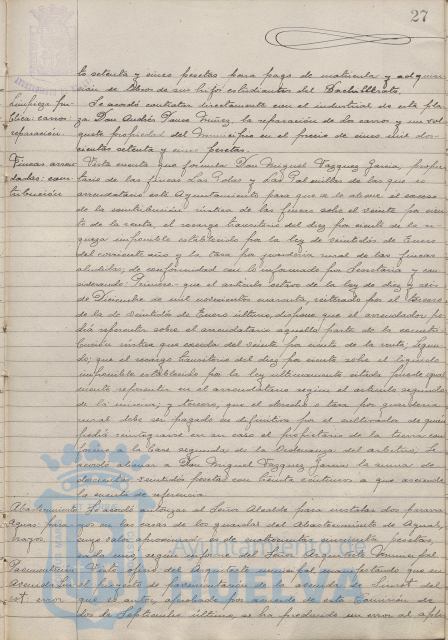 27
to setenta y cinco pesetas para pago de matricula y adquisi-
ción de libros de sus hijos estudiantes del Bachillerato.
Limpieza pú-
blica: carros:
reparación.
Se acordó contratar directamente con el industrial de esta pla-
za Don Andrés Ponce Núñez, la reparación de los carros y un vol-
quete propiedad del Municipio en el precio de cinco mil dos-
cientas setenta y cinco pesetas.
Fincas arren-
dadas: con-
tribución
Vista cuenta que formula Don Miguel Vazquez Garcia, propie-
tario de las fincas Las Potas y Las Palmillas de las que es
arrendatario este Ayuntamiento para que se le abone el exceso
de la contribución rústica de las fincas sobre el veinte por cien-
to de la renta, el recargo transitorio del diez por ciento de la ri-
queza imponible establecido por la ley de veintidós de Enero
del corriente año y la tasa por guardería rural de las fincas
aludidas; de conformidad con lo informado por Secretaría y con-
siderando: Primero: que el artículo octavo de la ley de diez y seis
de Diciembre de mil novecientos cuarenta, reiterado por el tercero
de la de veintidós de Enero último, dispone que el arrendador po-
drá repercutir sobre el arrendatario aquella parte de la contri-
bución rústica que exceda del veinte por ciento de la renta; Segun-
do: que el recargo transitorio del diez por ciento sobre el líquido
imponible establecido por la ley últimamente citada puede igual-
mente repercutir en el arrendatario según el artículo segundo
de la misma; y tercero, que el derecho o tasa por guardería
rural debe ser pagado en definitiva por el cultivador de quien
podrá reintegrarse en su caso el propietario de la tierra con-
forme a la base segunda de la Ordenanza del arbitrio, Se
acordó abonar a Don Miguel Vazquez Garcia la suma de
doscientas veintidós pesetas con treinta céntimos a que asciende
la cuenta de referencia.
Abastecimiento
Aguas: para-
rrayos.
Se acordó autorizar al Señor Alcalde para instalar dos pararra-
yos en las casas de los guardas del Abastecimiento de Aguas,
cuyo valor aproximado es de cuatrocientas cincuenta pesetas,
cada uno, según informe del Señor Arquitecto Municipal.
Pavimentación
Visto oficio del Arquitecto municipal manifestando que en
el proyecto de pavimentación de la acera de
que se autor, aprobado por acuerdo de esta Comisión de
dos de Septiembre último, se ha producido un error al apli-
Ayuntamiento de
HUELVA